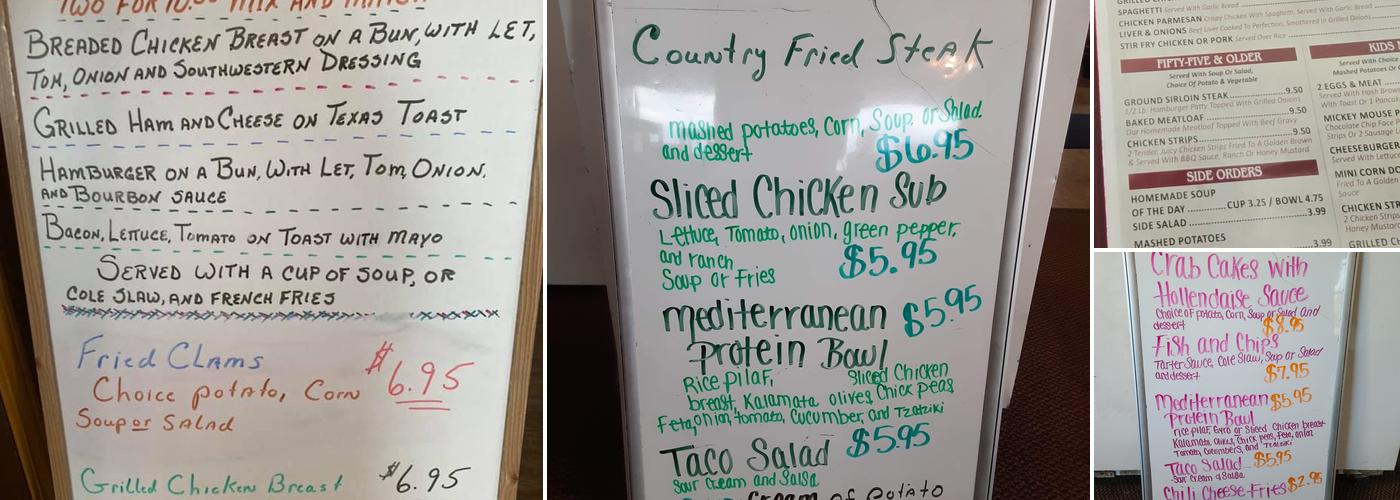 TWO FOR 10.00 MIX AND MATCH
BREADED CHICKEN BREAST ON A BUN, WITH LET,
TOM, ONION AND SOUTHWESTERN DRESSING
GRILLED HAM AND CHEESE ON TEXAS TOAST
HAMBURGER ON A BUN, WITH LET, TOM, ONION,
AND BOURBON SAUCE
BACON, LETTUCE, TOMATO ON TOAST WITH MAYO
SERVED WITH A CUP OF SOUP, OR
COLE SLAW, AND FRENCH FRIES
Fried Clams
$6.95
Choice potato, Corn
Soup or Salad
Grilled Chicken Breast $6.95
Country Fried Steak
mashed potatoes, Corn, Soup or Salad
and dessert
$6.95
Sliced Chicken Sub
Lettuce, Tomato, onion, green pepper,
and ranch
$5.95
Soup or Fries
mediterranean $5.95
Protein Bowl
Rice pilaf, Sliced Chicken
breast, Kalamata olives, Chick peas
Feta, onion, tomato, Cucumber, and Tzatziki
Taco Salad $5.95
Sour Cream and Salsa
Cream of potato
SPAGHETTI Served With Garlic Bread
CHICKEN PARMESAN Crispy Chicken With Spaghetti, Served With Garlic Bread
LIVER & ONIONS Beef Liver Cooked To Perfection, Smothered In Grilled Onions
STIR FRY CHICKEN OR PORK Served Over Rice
FIFTY-FIVE & OLDER
Served With Soup Or Salad,
Choice Of Potato & Vegetable
GROUND SIRLOIN STEAK 9.50
1/2 Lb. Hamburger Patty Topped With Grilled Onions
BAKED MEATLOAF 9.50
Our Homemade Meatloaf Topped With Beef Gravy
CHICKEN STRIPS 9.50
2 Tender, Juicy Chicken Strips Fried To A Golden Brown
& Served With BBQ Sauce, Ranch Or Honey Mustard
SIDE ORDERS
HOMEMADE SOUP
OF THE DAY CUP 3.25 / BOWL 4.75
SIDE SALAD 3.99
MASHED POTATOES 3.99
KIDS
Served With Choice
Mashed Potatoes O
2 EGGS & MEAT
Served With Hash Brow
With Toast Or 1 Panca
MICKEY MOUSE P
Chocolate Chip Face P
Strips Or 2 Sausage
CHEESEBURGER
Served With Lettu
MINI CORN DO
Fried To A Golden
Sauce
CHICKEN STR
2 Chicken Strips
Honey Mustard
GRILLED CH
Crab Cakes with
Hollendaise Sauce
Choice of potato, Corn, Soup or Salad and
dessert $8.95
Fish and Chips
Tarter Sauce, Cole Slaw, Soup or Salad
and dessert $7.95
Mediterranean $5.95
Protein Bowl
rice pilaf, Gyro or Sliced Chicken breast
Kalamata, Olives, Chick peas, Feta, onion
Tomato, Cucumbers, and Tzatziki
Taco Salad $5.95
Sour Cream & Salsa
Chili Cheese Fries $2.95